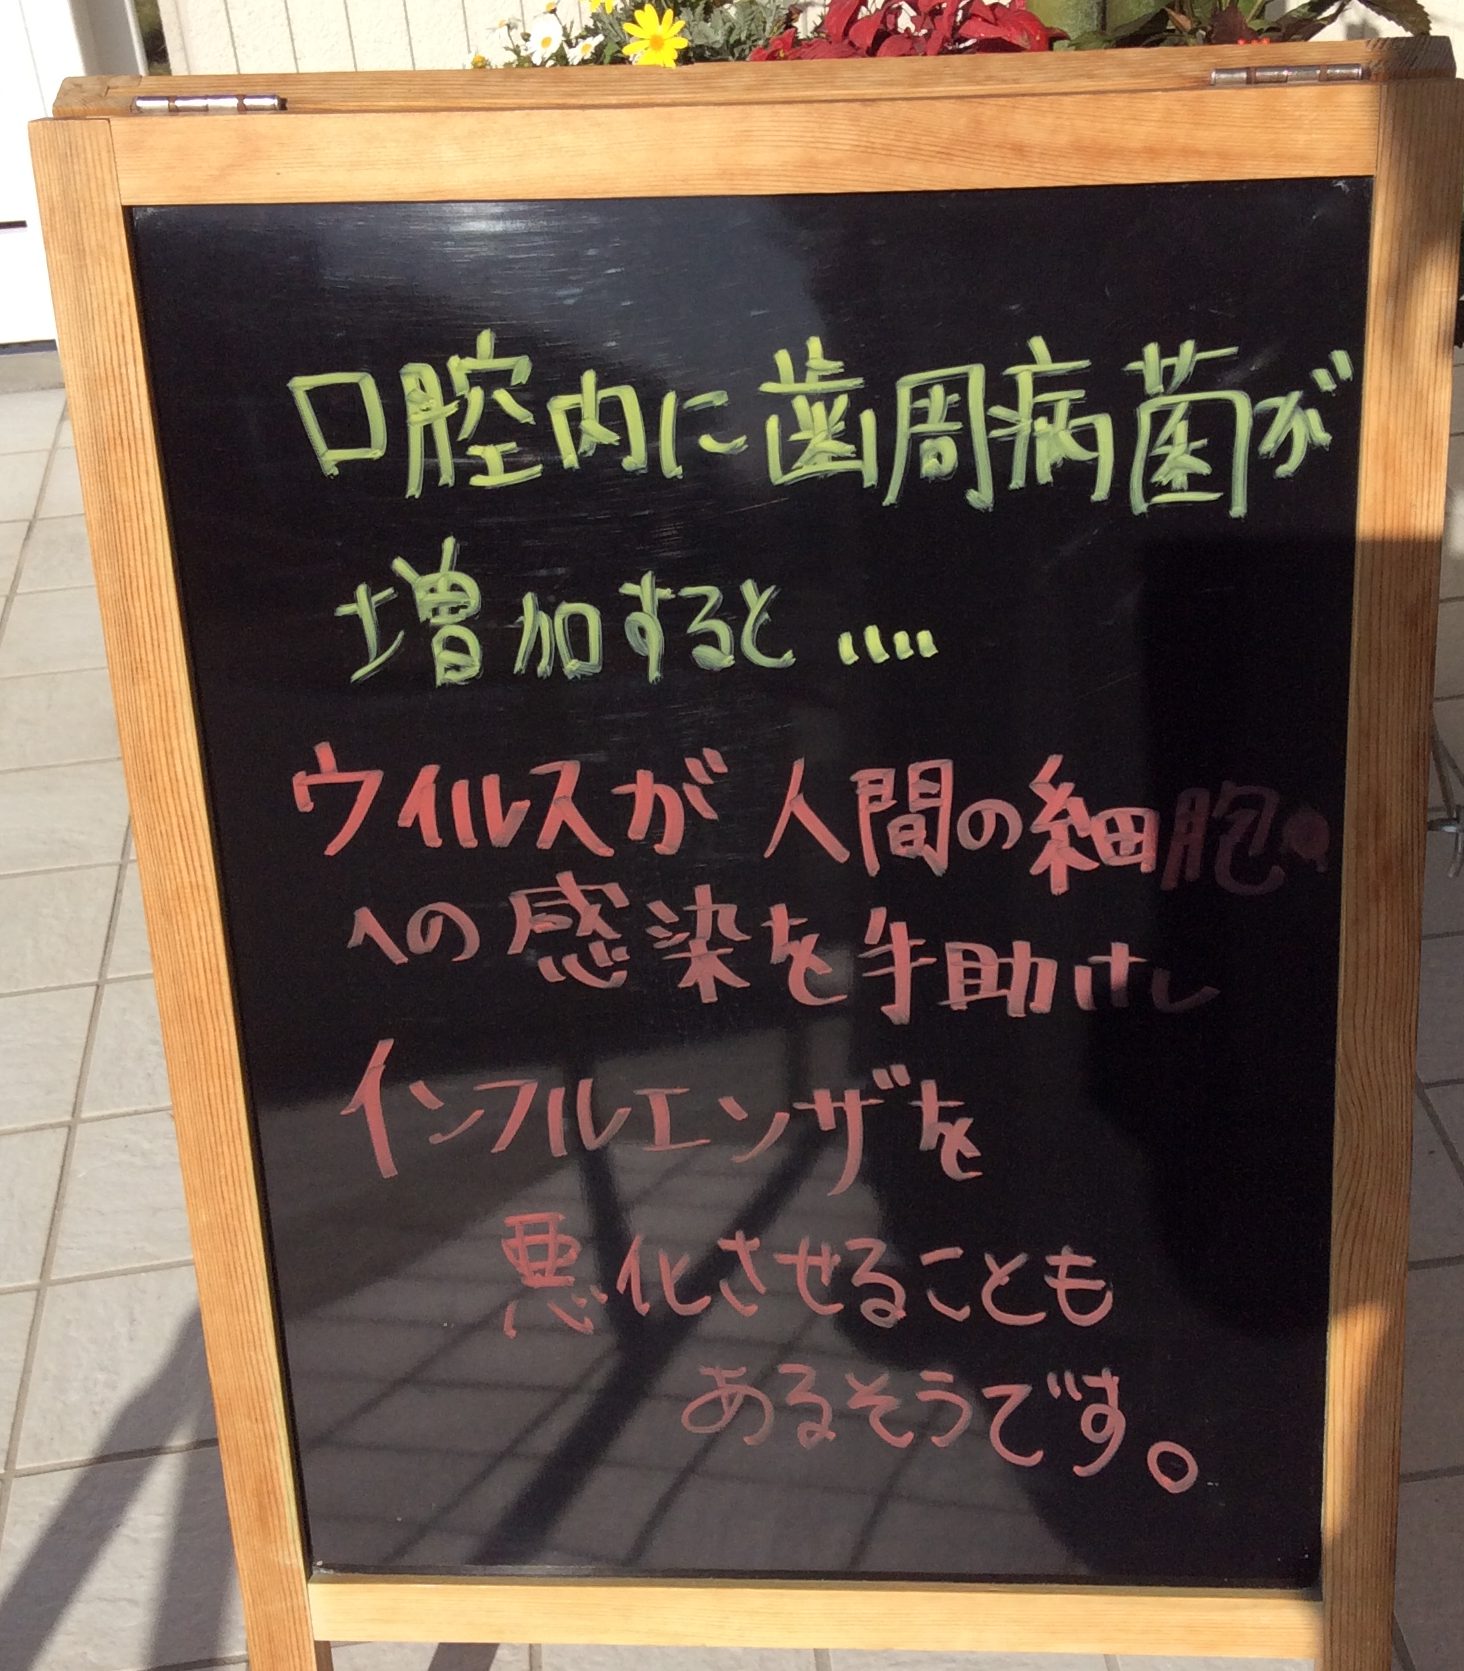 口腔内に歯周病菌が
増加すると....
ウイルスが人間の細胞
への感染を手助けし
インフルエンザを
悪化させることも
あるそうです。